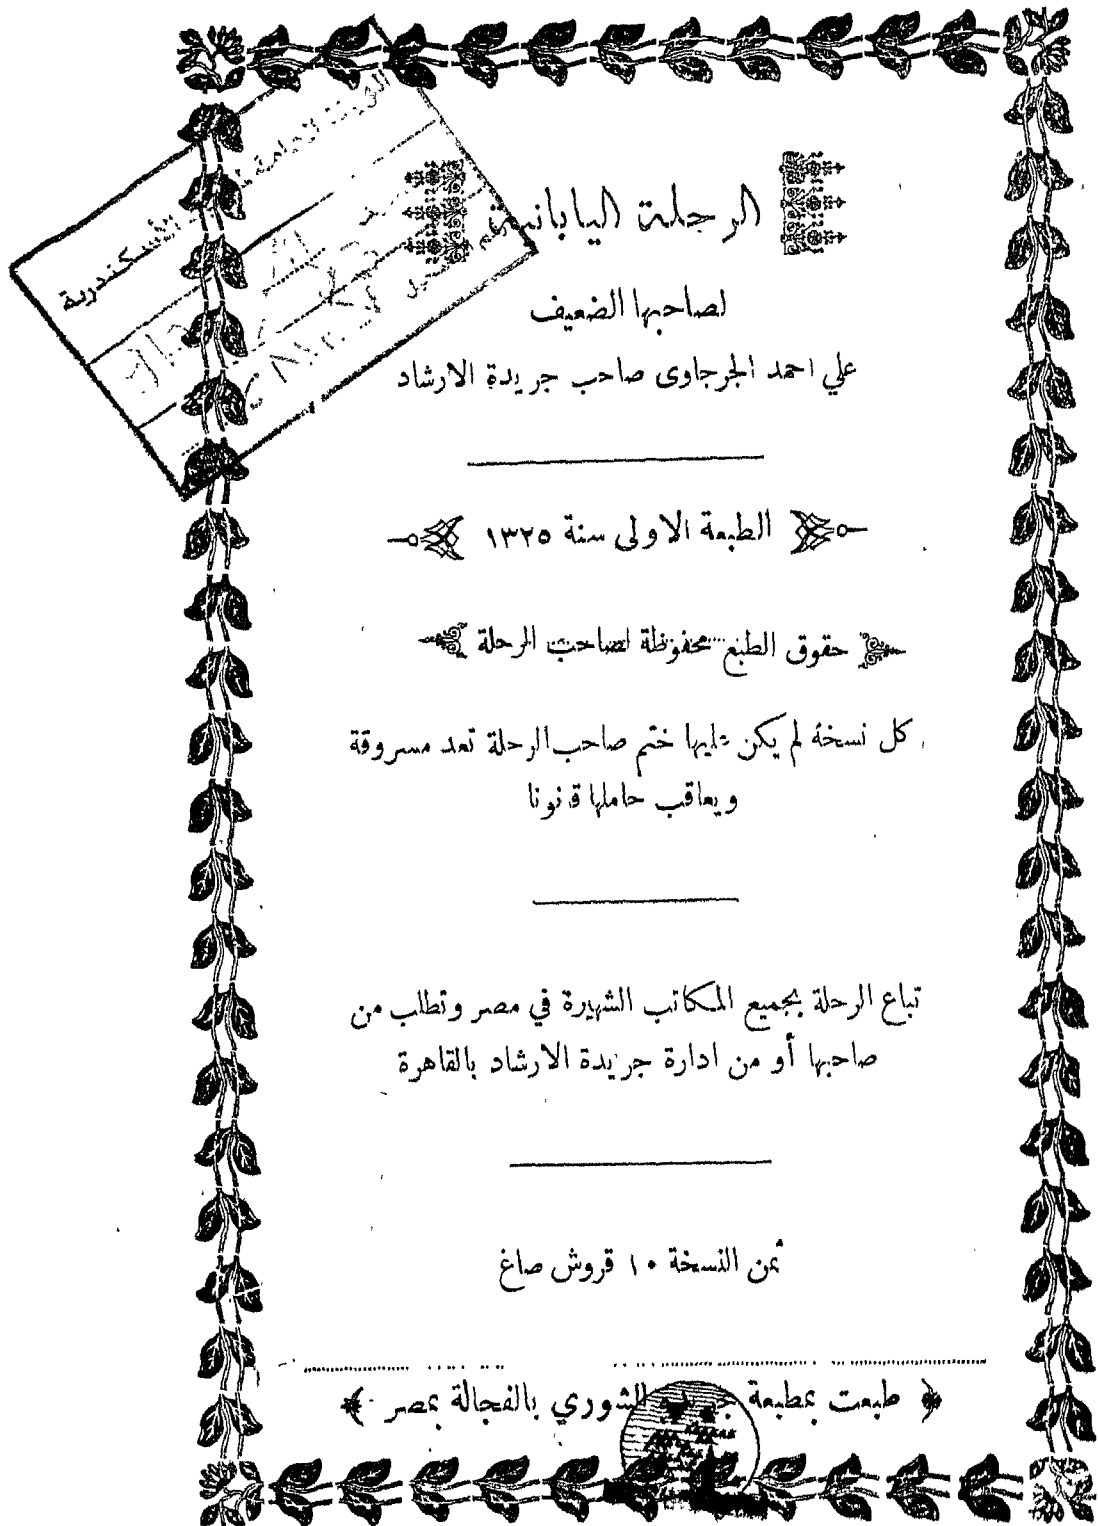 الرحلة اليابانية
لصاحبها الضعيف
علي احمد الجرجاوى صاحب جريدة الارشاد
الطبعة الاولى سنة ١٣٢٥
حقوق الطبع محفوظة لصاحب الرحلة
كل نسخة لم يكن عليها ختم صاحب الرحلة تعد مسروقة
ويعاقب حاملها قانونا
تباع الرحلة بجميع المكاتب الشهيرة في مصر وتطلب من
صاحبها أو من ادارة جريدة الارشاد بالقاهرة
ثمن النسخة ١٠ قروش صاغ
طبعت بمطبعة جريدة الشورى بالفجالة بمصر
الأسكندرية